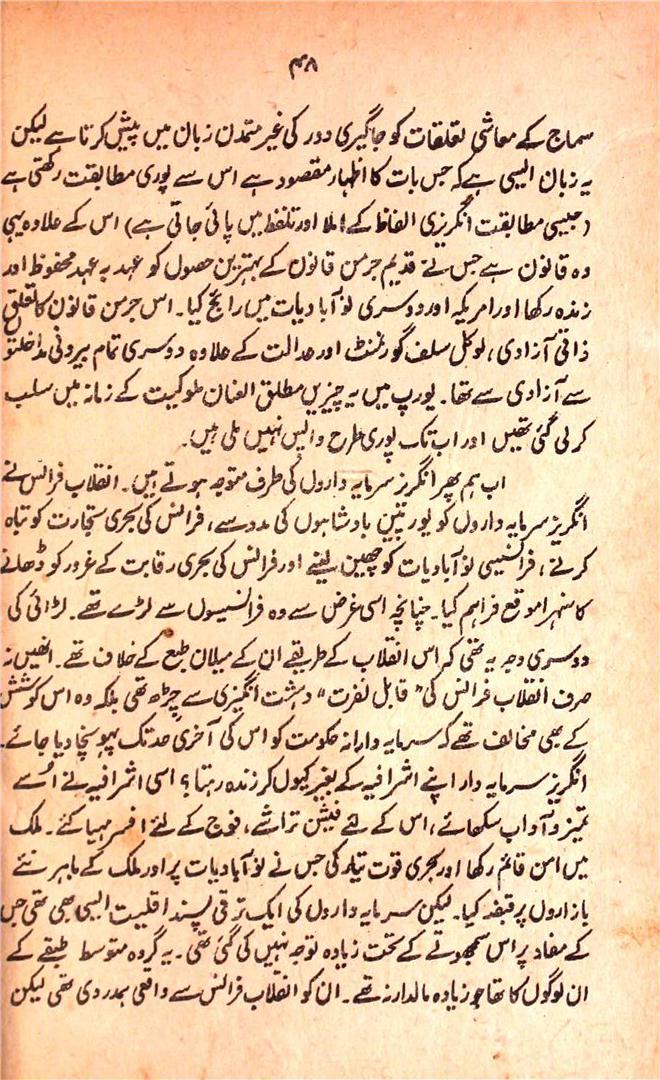 ۴۸
سماج کے معاشی تعلقات کو جاگیری دور کی غیر متمدن زبان میں پیش کرتا ہے لیکن
یہ زبان ایسی ہے کہ جس بات کا اظہار مقصود ہے اس سے پوری مطابقت رکھتی ہے
(جیسی مطابقت انگریزی الفاظ کے املا اور تلفظ میں پائی جاتی ہے) اس کے علاوہ یہی
وہ قانون ہے جس نے قدیم جرمن قانون کے بہترین حصول کو عہد بہ عہد محفوظ اور
زندہ رکھا اور امریکہ اور دوسری نوآبادیات میں رائج کیا۔ اس جرمن قانون کا تعلق
ذاتی آزادی، لوکل سلف گورنمنٹ اور عدالت کے علاوہ دوسری تمام بیرونی مداخلتو
سے آزادی سے تھا۔ یورپ میں یہ چیزیں مطلق العنان ملوکیت کے زمانہ میں سلب
کرلی گئی تھیں اور اب تک پوری طرح واپس نہیں ملی ہیں۔
اب ہم پھر انگریز سرمایہ داروں کی طرف متوجہ ہوتے ہیں۔ انقلاب فرانس نے
انگریز سرمایہ داروں کو یورپین بادشاہوں کی مدد سے، فرانس کی بحری تجارت کو تباہ
کرنے، فرانسیسی نوآبادیات کو چھین لینے اور فرانس کی بحری رقابت کے غرور کو ڈھانے
کا سنہرا موقع فراہم کیا۔ چنانچہ اسی غرض سے وہ فرانسیسوں سے لڑے تھے۔ لڑائی کی
دوسری وجہ یہ تھی کہ اس انقلاب کے طریقے ان کے میلان طبع کے خلاف تھے۔ انھیں نہ
صرف انقلاب فرانس کی "قابل نفرت" دہشت انگیزی سے چڑھ تھی بلکہ وہ اس کوشش
کے بھی مخالف تھے کہ سرمایہ دارانہ حکومت کو اس کی آخری حد تک پہونچا دیا جائے۔
انگریز سرمایہ دار اپنے اشرافیہ کے بغیر کیوں کر زندہ رہتا؟ اسی اشرافیہ نے اُسے
تمیز و آداب سکھائے، اس کے لئے فیشن تراشے، فوج کے لئے افسر مہیا کئے۔ ملک
میں امن قائم رکھا اور بحری قوت تیار کی جس نے نوآبادیات پر اور ملک کے باہر نئے
بازاروں پر قبضہ کیا۔ لیکن سرمایہ داروں کی ایک ترقی پسند اقلیت ایسی بھی تھی جس
کے مفاد پر اس سمجھوتے کے تحت زیادہ توجہ نہیں کی گئی تھی۔ یہ گروہ متوسط طبقے کے
ان لوگوں کا تھا جو زیادہ مالدار نہ تھے۔ ان کو انقلاب فرانس سے واقعی ہمدردی تھی لیکن